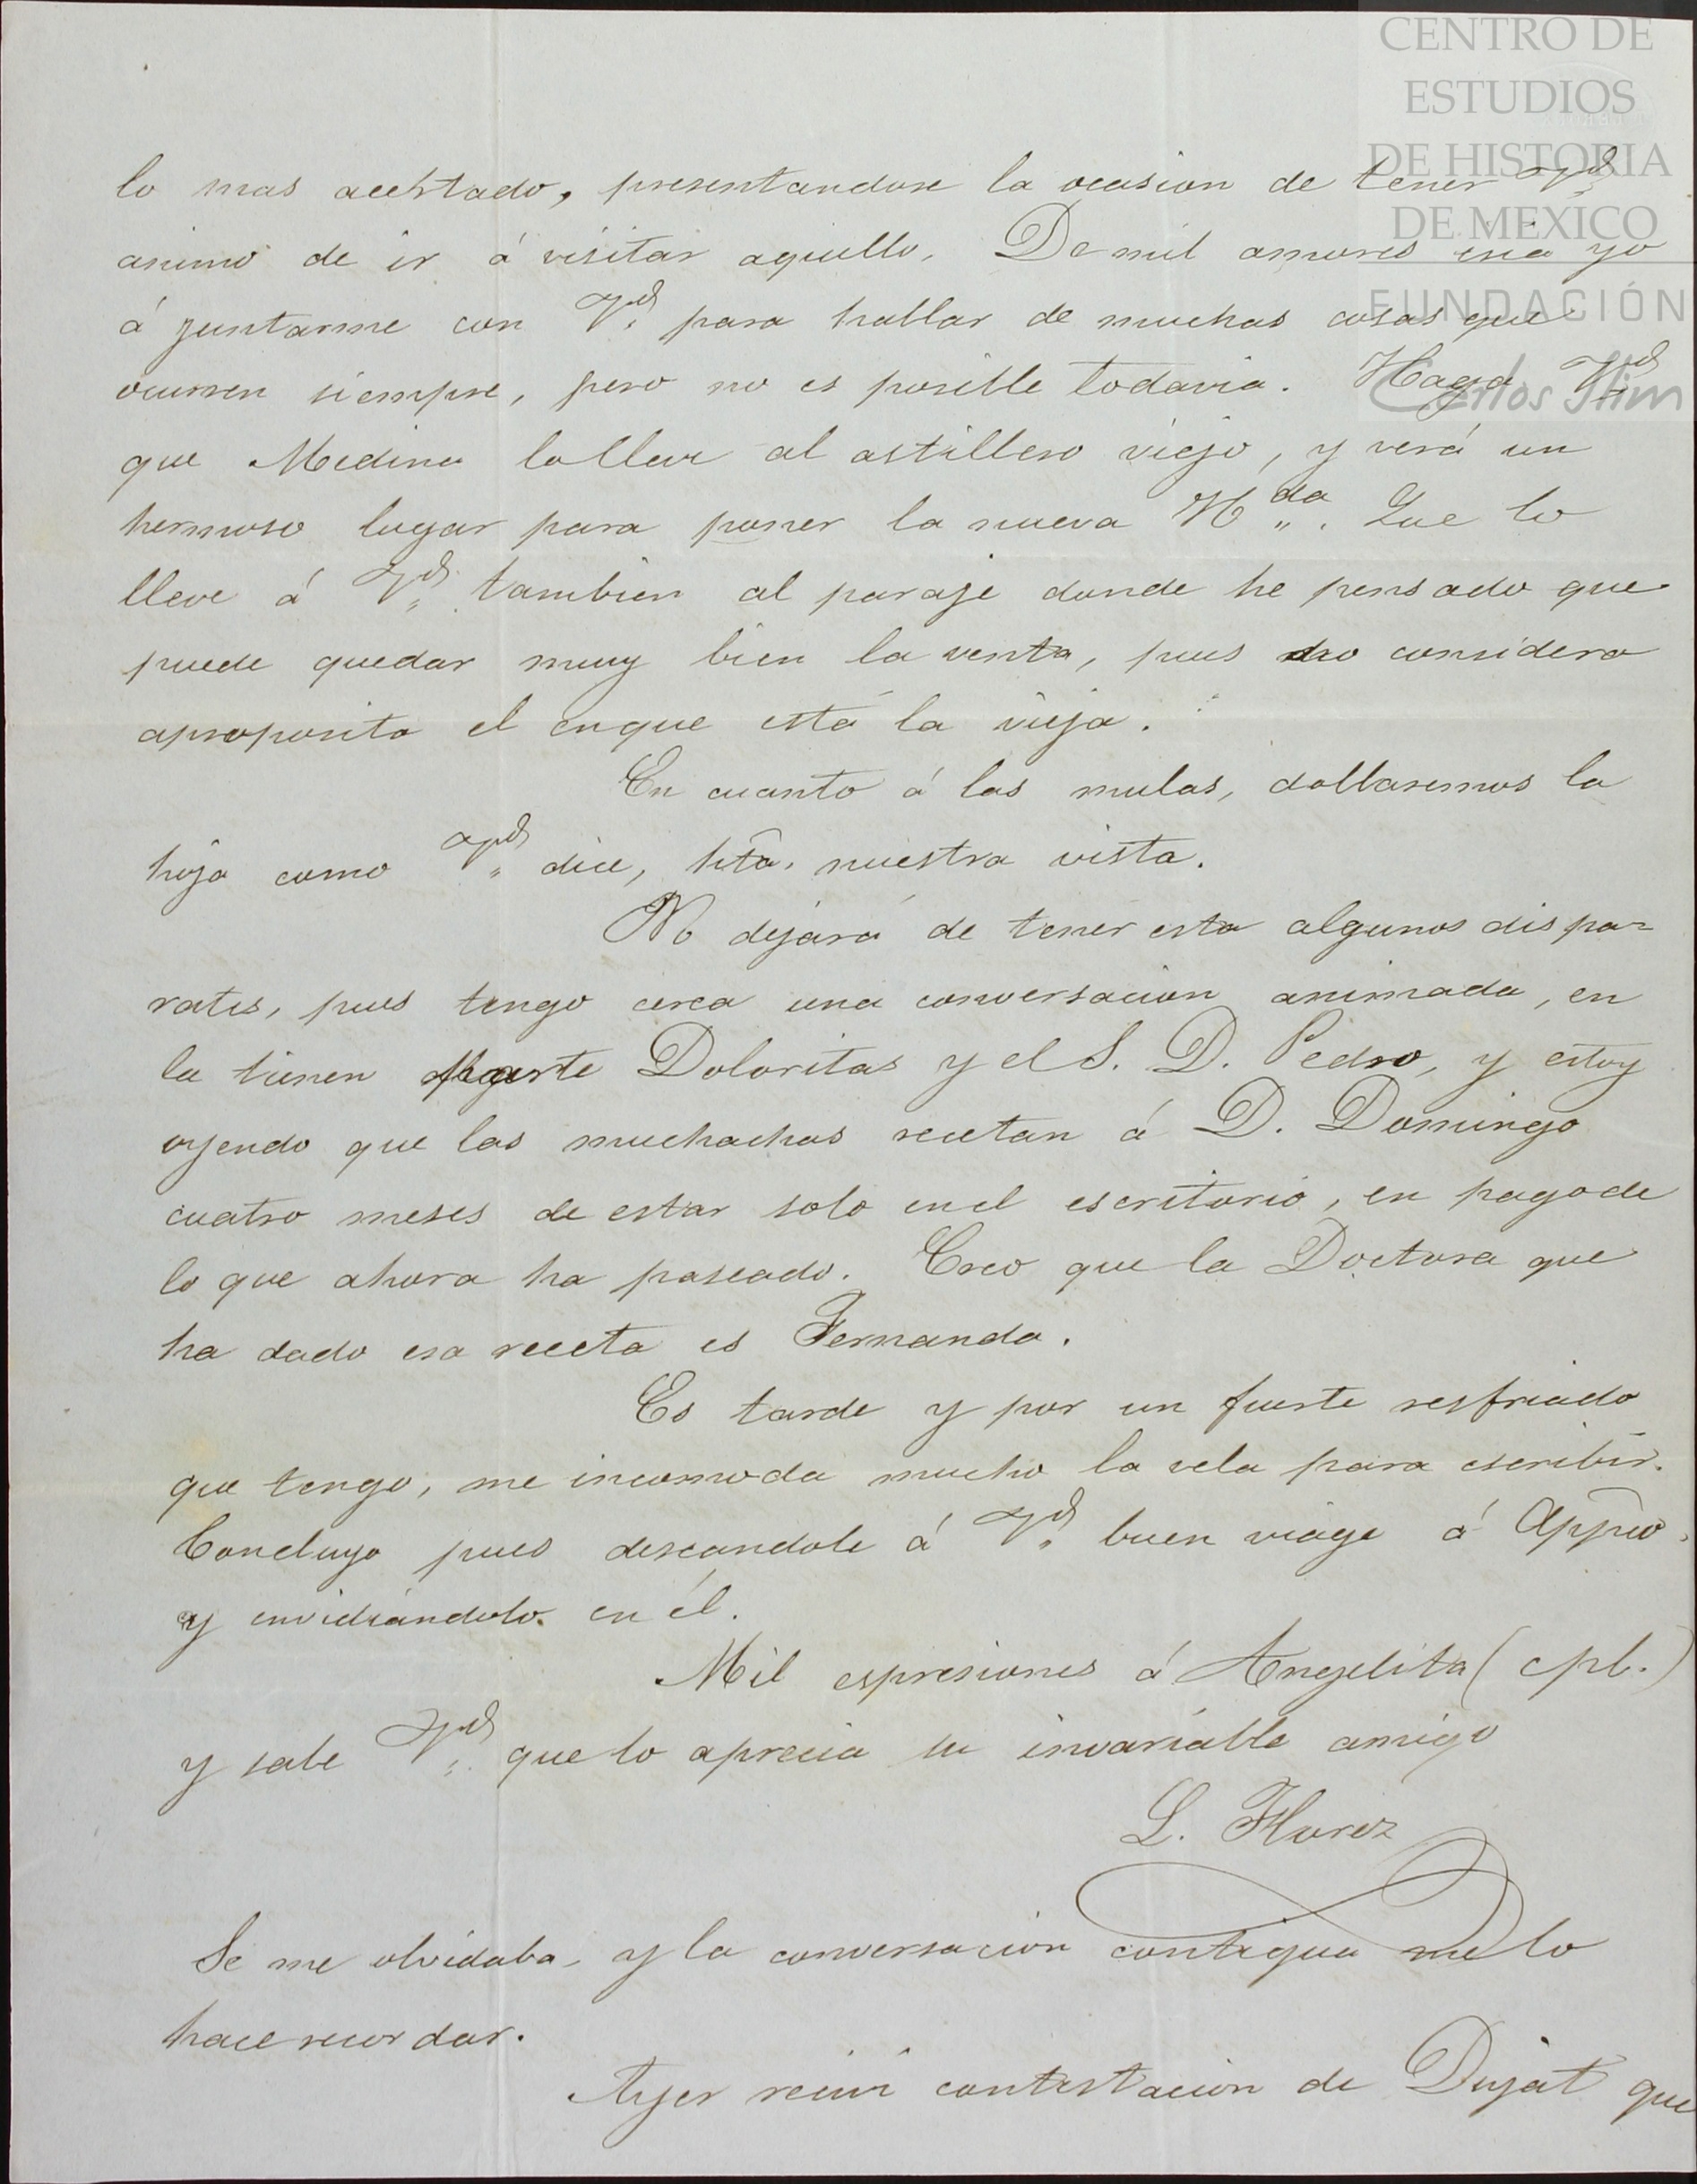 CENTRO DE
ESTUDIOS
DE HISTORIA
DE MEXICO
FUNDACIÓN
Carlos Slim
lo mas acertado, presentandose la ocasion de tener Vd.
animo de ir á visitar aquello. De mil amores iria yo
á juntarme con Vd. para hablar de muchas cosas que
ocurren siempre, pero no es posible todavia. Haga Vd.
que Medina lo lleve al astillero viejo, y verá un
hermoso lugar para poner la nueva Hda. Que lo
lleve á Vd. tambien al paraje donde he pensado que
puede quedar muy bien la venta, pues no considero
aproposito el en que está la vieja.
En cuanto á las mulas, doblaremos la
hoja como Vd. dice, hta. nuestra vista.
No dejará de tener esta algunos dispa=
rates, pues tengo cerca una conversacion animada, en
la tienen parte Doloritas y el S. D. Pedro, y estoy
oyendo que las muchachas recetan á D. Domingo
cuatro meses de estar solo en el escritorio, en pago de
lo que ahora ha paseado. Creo que la Doctora que
ha dado esa receta es Fernanda.
Es tarde y por un fuerte resfriado
que tengo, me incomoda mucho la vela para escribir.
Concluyo pues deseandole á Vd. buen viage á Appco.
y envidiándolo en él.
Mil espresiones á Angelita (cpb.)
y sabe Vd. que lo aprecia su invariable amigo
L. Florez
Se me olvidaba, y la conversacion contigua me lo
hace recordar.
Ayer recivi contestacion de Dujat que